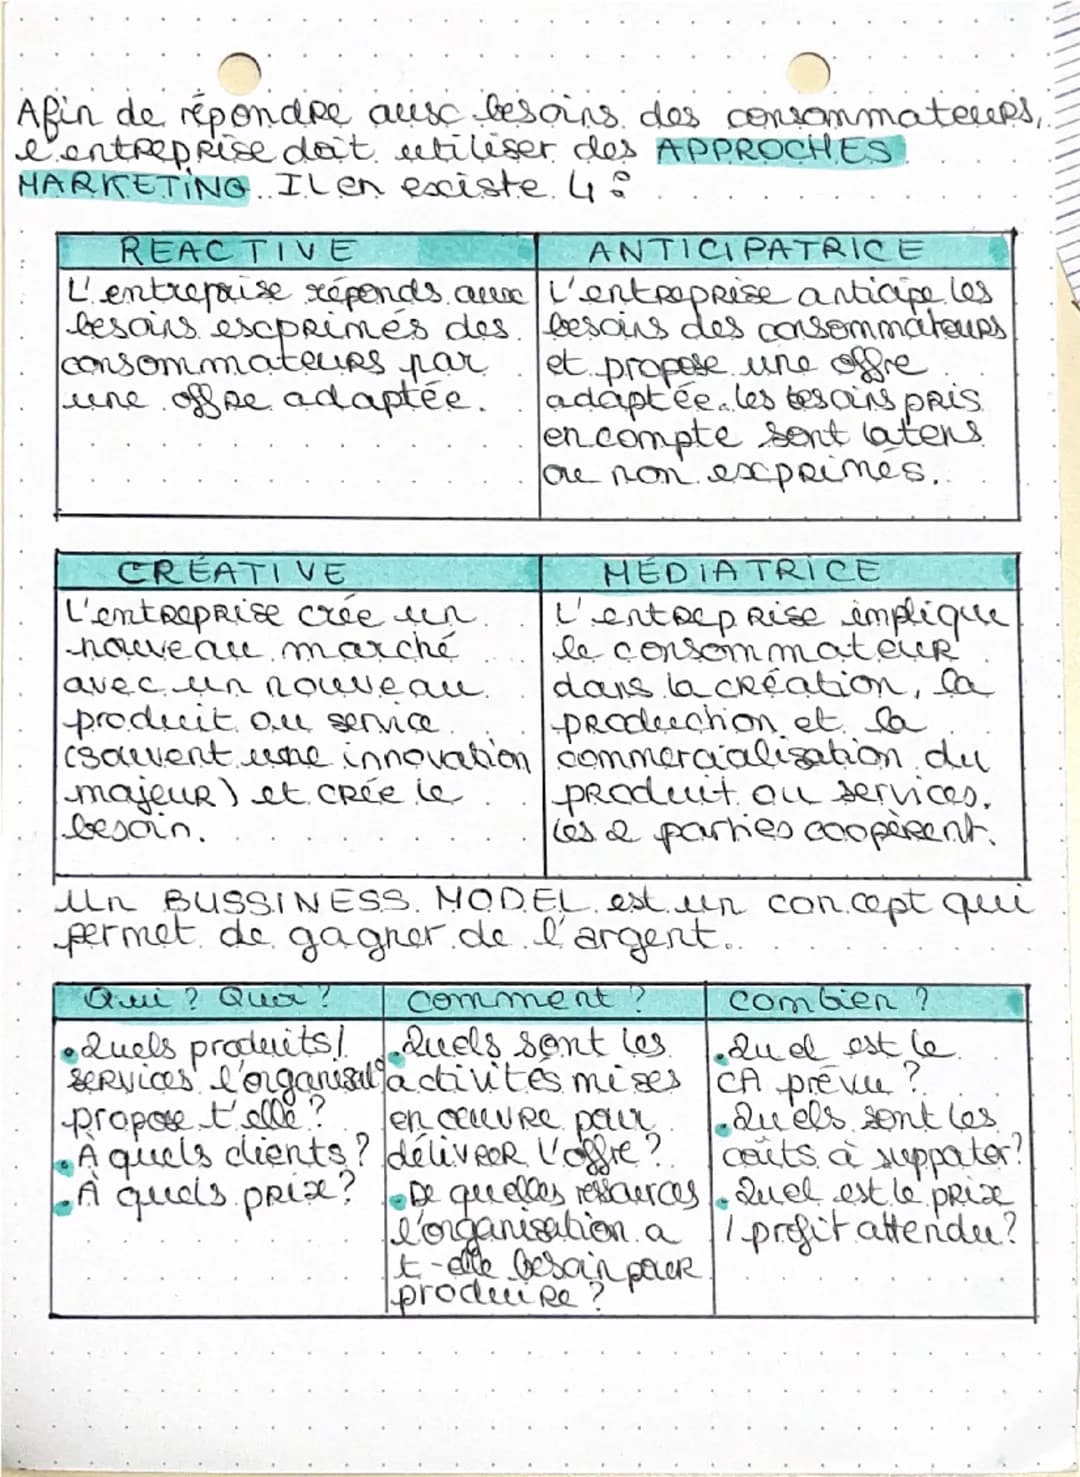 Afin de répondre aux besoins des consommateurs,
l'entreprise doit utiliser des APPROCHES
MARKETING. Il en existe 4 :
REACTIVE
L'entreprise réponds aux
besoins exprimés des
consommateurs par
une offre adaptée.
ANTICIPATRICE
L'entreprise anticipe les
besoins des consommateurs
et propose une offre
adaptée. les besoins pris
en compte sont latens
ou non exprimés.
CRÉATIVE
L'entreprise crée un
nouveau marché
avec un nouveau
produit ou service
(souvent une innovation
majeur) et crée le
besoin.
MÉDIATRICE
L'entreprise implique
le consommateur
dans la création, la
production et la
commercialisation du
produit ou services.
Les 2 parties coopèrent.
Un BUSSINESS MODEL est un concept qui
permet de gagner de l'argent.
Qui ? Quoi ?
• Quels produits/
services l'organisat°
propose t'elle ?
• À quels clients ?
• À quels prix ?
Comment ?
• Quels sont les
activités mises
en œuvre pour
délivrer l'offre ?
• De quelles ressources
l'organisation a
t-elle besoin pour
produire ?
Combien ?
• Quel est le
CA prévu ?
• Quels sont les
coûts à suppoter ?
• Quel est le prix
/ profit attendu ?